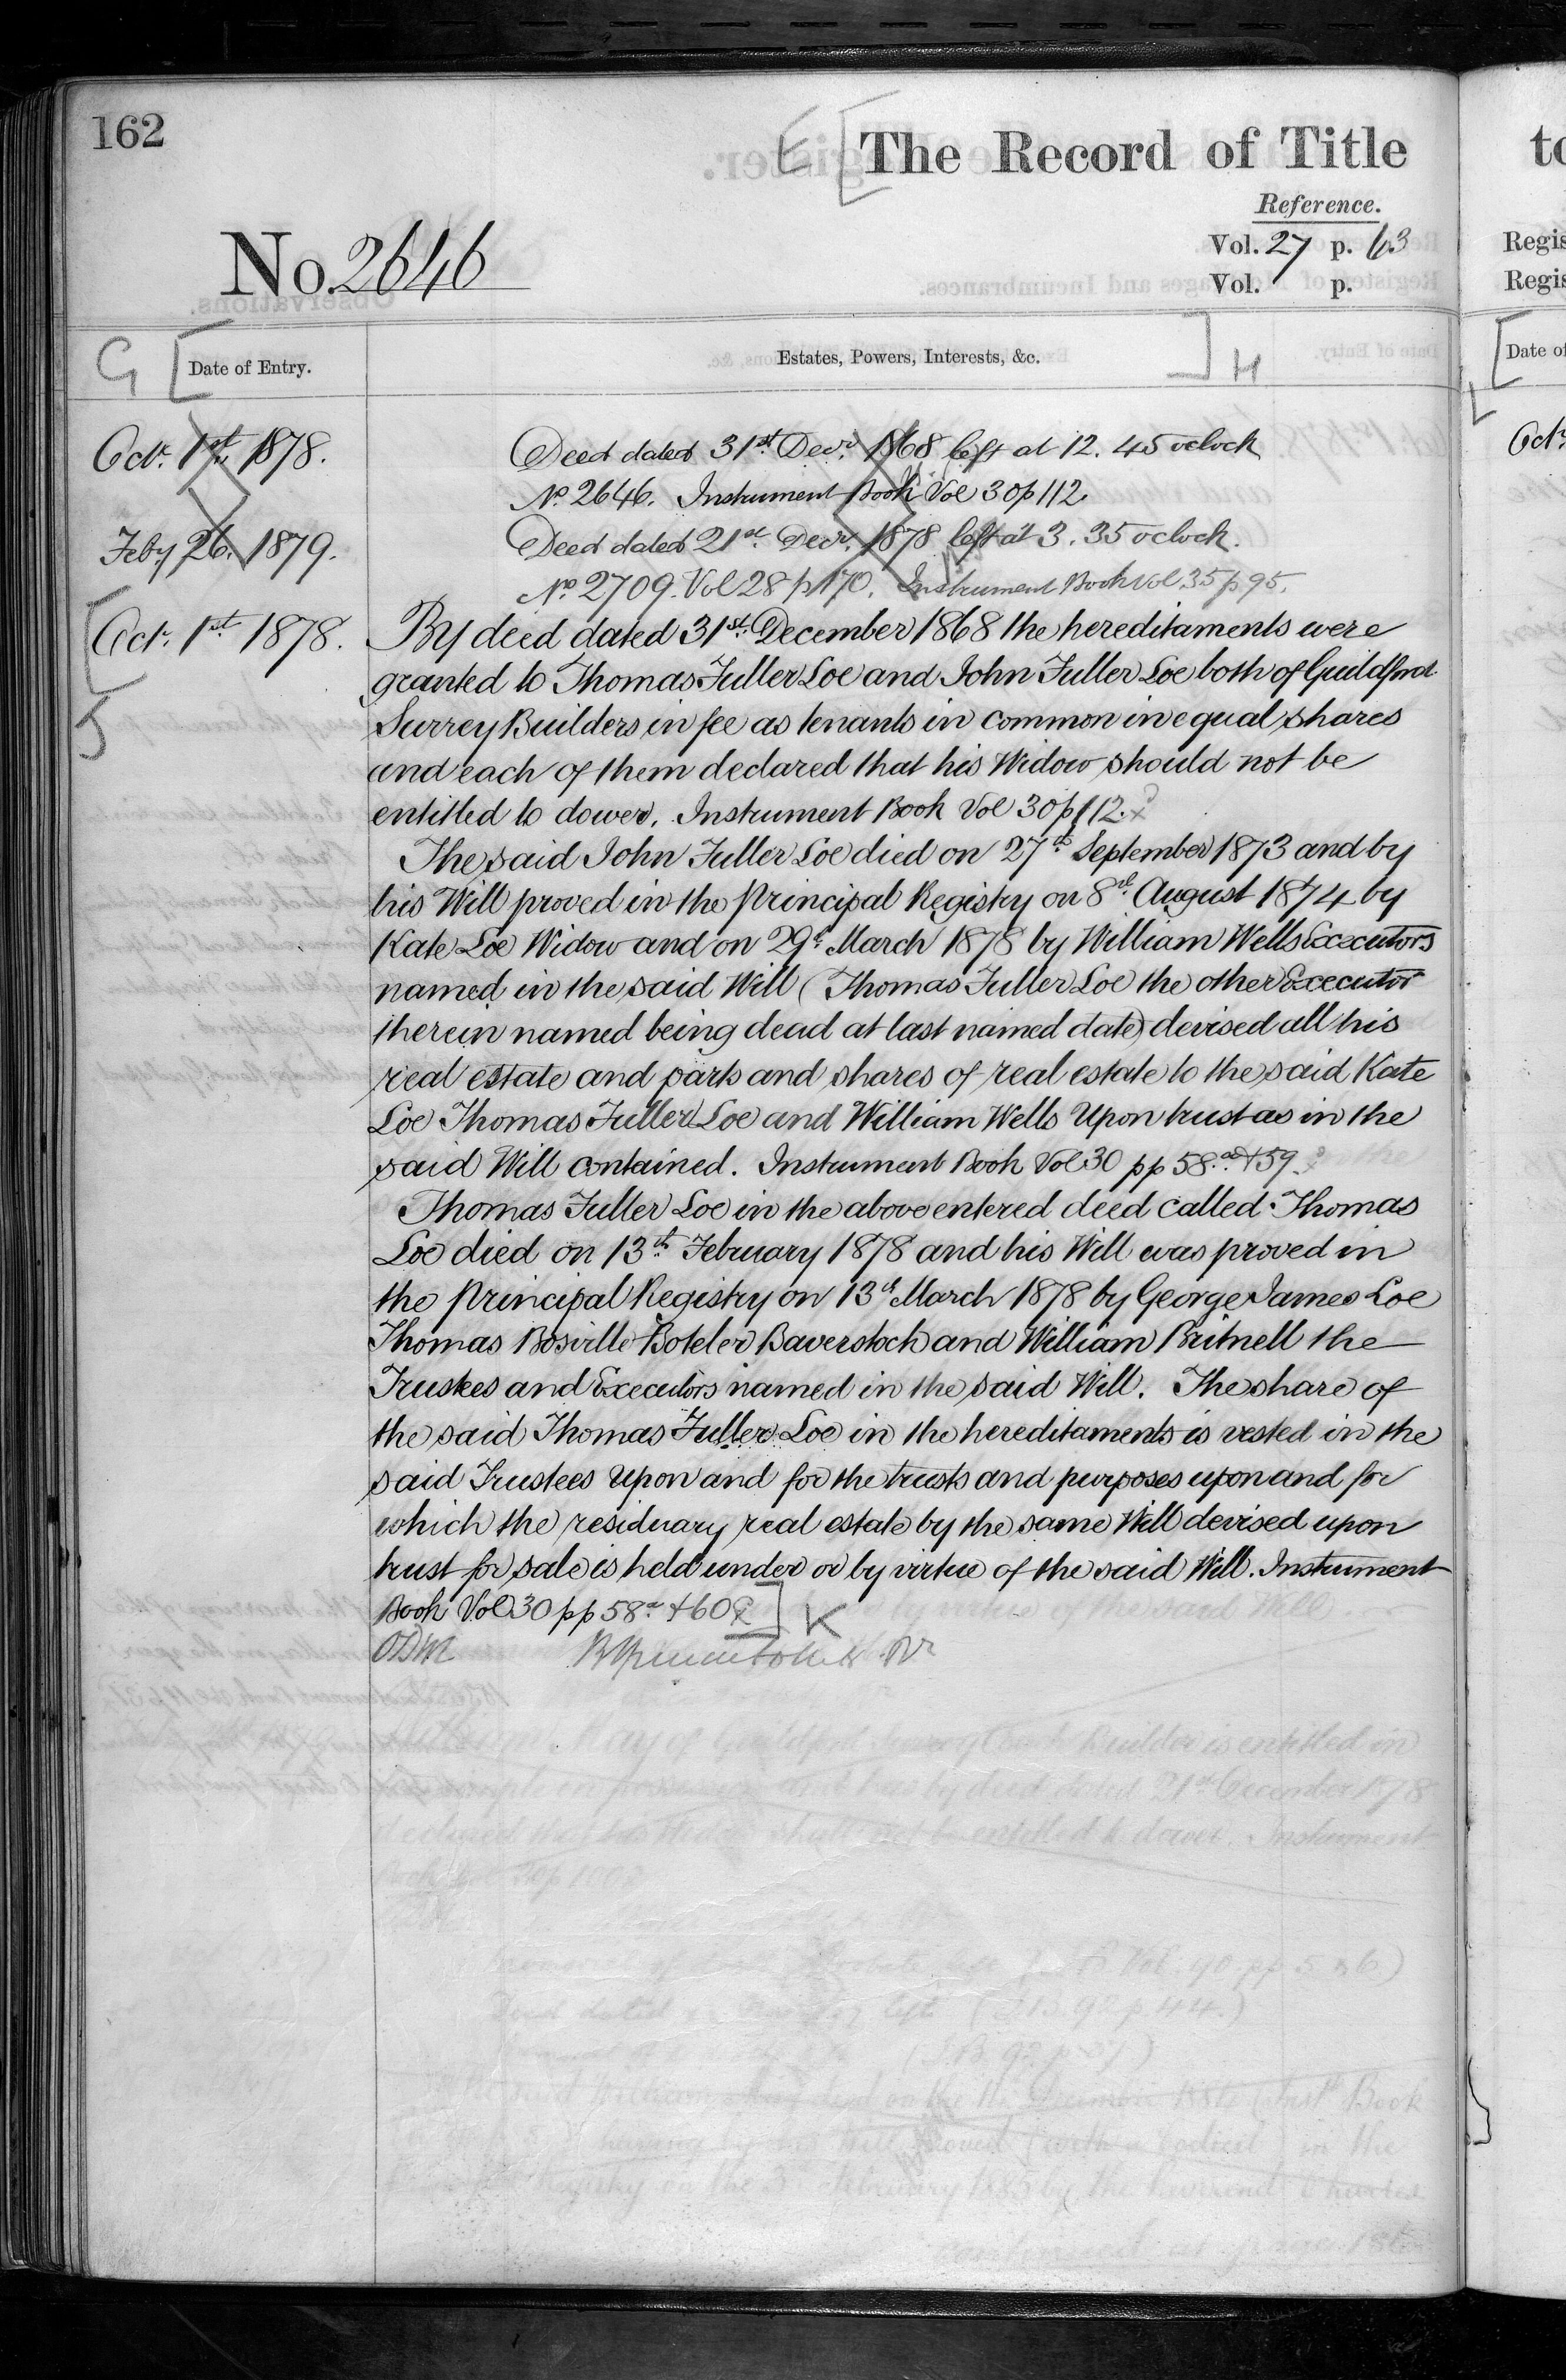 162
E [ The Record of Title
Reference.
No. 2646
Vol. 27 p. 63
Vol. p.
G [ Date of Entry.
Estates, Powers, Interests, &c. ] H
Octr. 1st 1878.
Deed dated 31st Decr. 1868 left at 12.45 oclock
No. 2646. Instrument Book Vol 30 p 112
Feby 26. 1879.
Deed dated 21st Decr. 1878 left at 3.35 oclock.
No. 2709. Vol 28 p 170. Instrument Book Vol 35 p 95.
[ J
Octr. 1st 1878.
By deed dated 31st December 1868 the hereditaments were
granted to Thomas Fuller Loe and John Fuller Loe both of Guildford
Surrey Builders in fee as tenants in common in equal shares
and each of them declared that his Widow should not be
entitled to dower. Instrument Book Vol 30 p 112.
The said John Fuller Loe died on 27th September 1873 and by
his Will proved in the Principal Registry on 8th August 1874 by
Kate Loe Widow and on 29th March 1878 by William Wells Executors
named in the said Will (Thomas Fuller Loe the other Executor
therein named being dead at last named date) devised all his
real estate and parts and shares of real estate to the said Kate
Loe Thomas Fuller Loe and William Wells Upon trust as in the
said Will contained. Instrument Book Vol 30 pp 58a & 59.
Thomas Fuller Loe in the above entered deed called Thomas
Loe died on 13th February 1878 and his Will was proved in
the Principal Registry on 13th March 1878 by George James Loe
Thomas Bosville Boteler Baverstock and William Britnell the
Trustees and Executors named in the said Will. The share of
the said Thomas Fuller Loe in the hereditaments is vested in the
said Trustees Upon and for the trusts and purposes upon and for
which the residuary real estate by the same Will devised upon
trust for sale is held under or by virtue of the said Will. Instrument
Book Vol 30 pp 58a & 60 ] K
to
Regis
Regis
[ Date of
L
Octr.